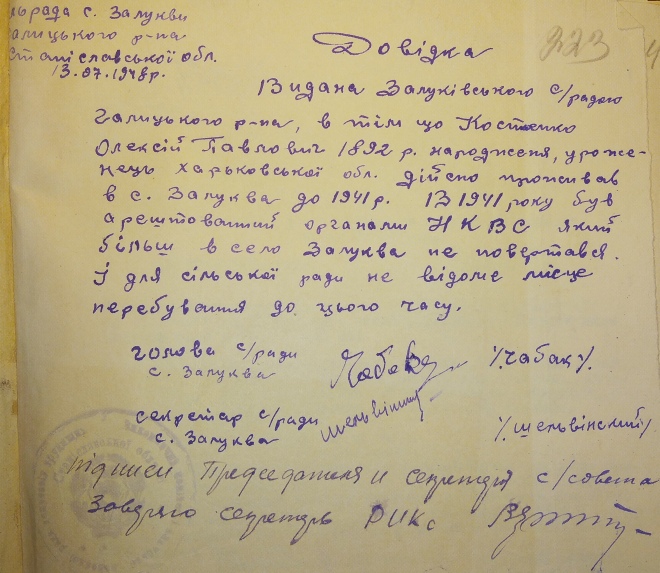 льрада с. Залукви
алицького р-на
Станіславської обл.
13.07.1948р.
223
Довідка
Видана Залуківського с/радою
Галицького р-на, в тім що Костенко
Олексій Павлович 1892 р. народженя, уроже-
нець Харьковської обл. дійсно проживав
в с. Залуква до 1941 р. В 1941 року був
арештований органами НКВС який
більш в село Залуква не повертався.
І для сільської ради не відоме місце
перебування до цього часу.
голова с/ради
с. Залуква
/чабак/.
секретар с/ради
с. Залуква
/шельвінский/
Підписи Председателя и секретаря с/совета
Завдряго секретарь РИКа